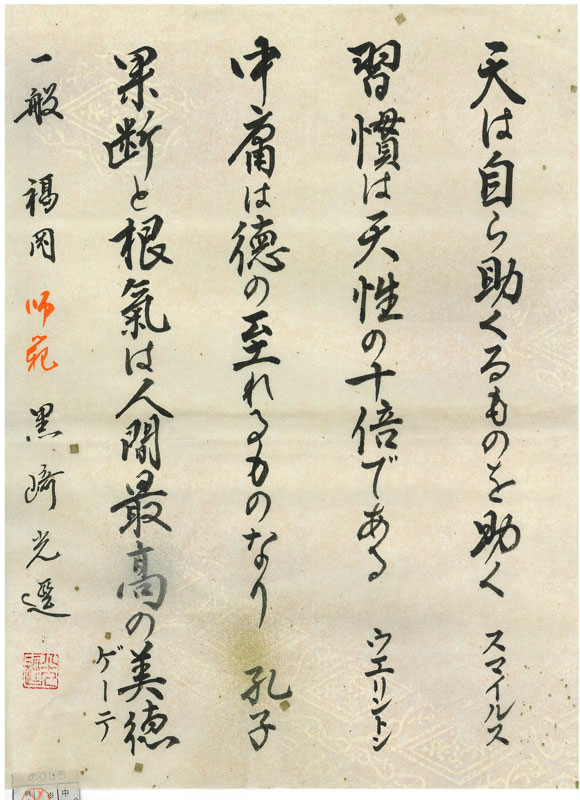 天は自ら助くるものを助く スマイルス
習慣は天性の十倍である ウエリントン
中庸は徳の至れるものなり 孔子
果断と根氣は人間最高の美徳 ゲーテ
一般 福岡 師範 黒崎光選